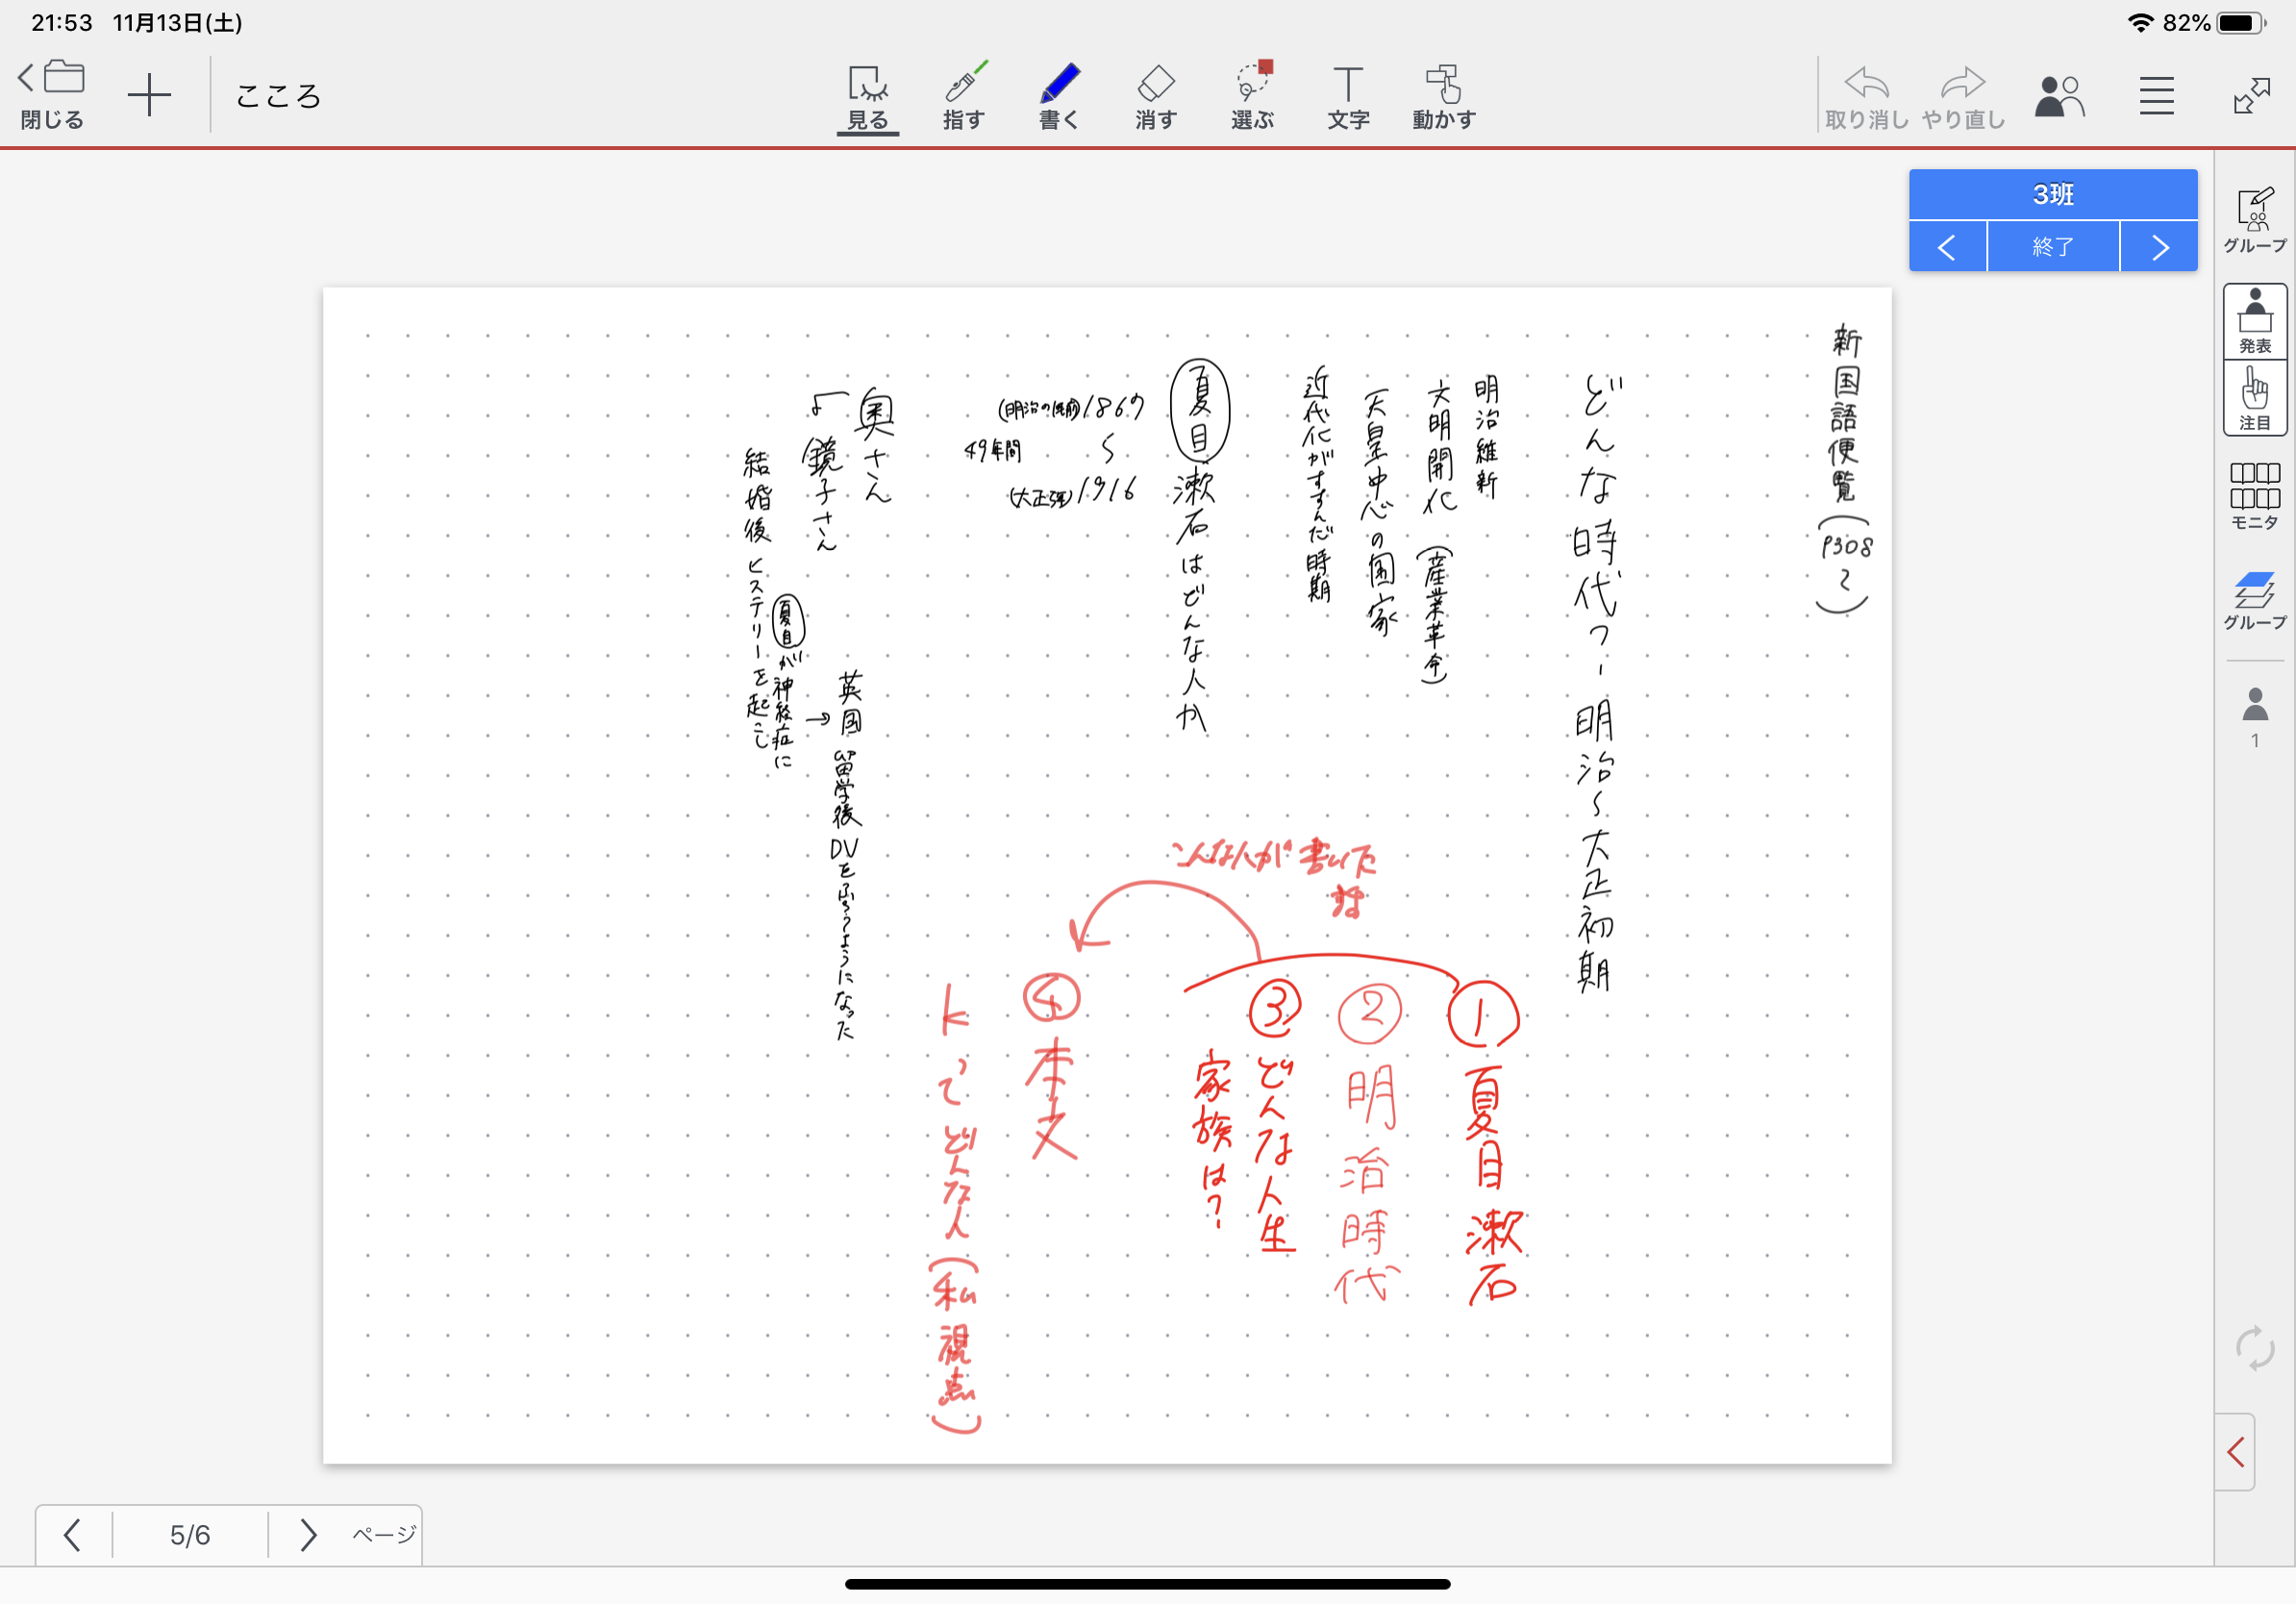 21:53 11月13日(土)
82%
閉じる
こころ
見る
指す
書く
消す
選ぶ
文字
動かす
取り消し
やり直し
3班
終了
グループ
発表
注目
モニタ
グループ
1
新国語便覧(P308~)
どんな時代?-明治~大正初期
明治維新
文明開化(産業革命)
天皇中心の国家
近代化がすすんだ時期
夏目漱石はどんな人か
(明治の直前)1867
49年間 ~
1916
奥さん
鏡子さん
英国留学後DVをふるうようになった
夏目が神経症に
結婚後ヒステリーを起こし
こんな人が書いた
①夏目漱石
②明治時代
③どんな人生
家族は?
④本文
Kってどんな人(私視点)
5/6
ページ